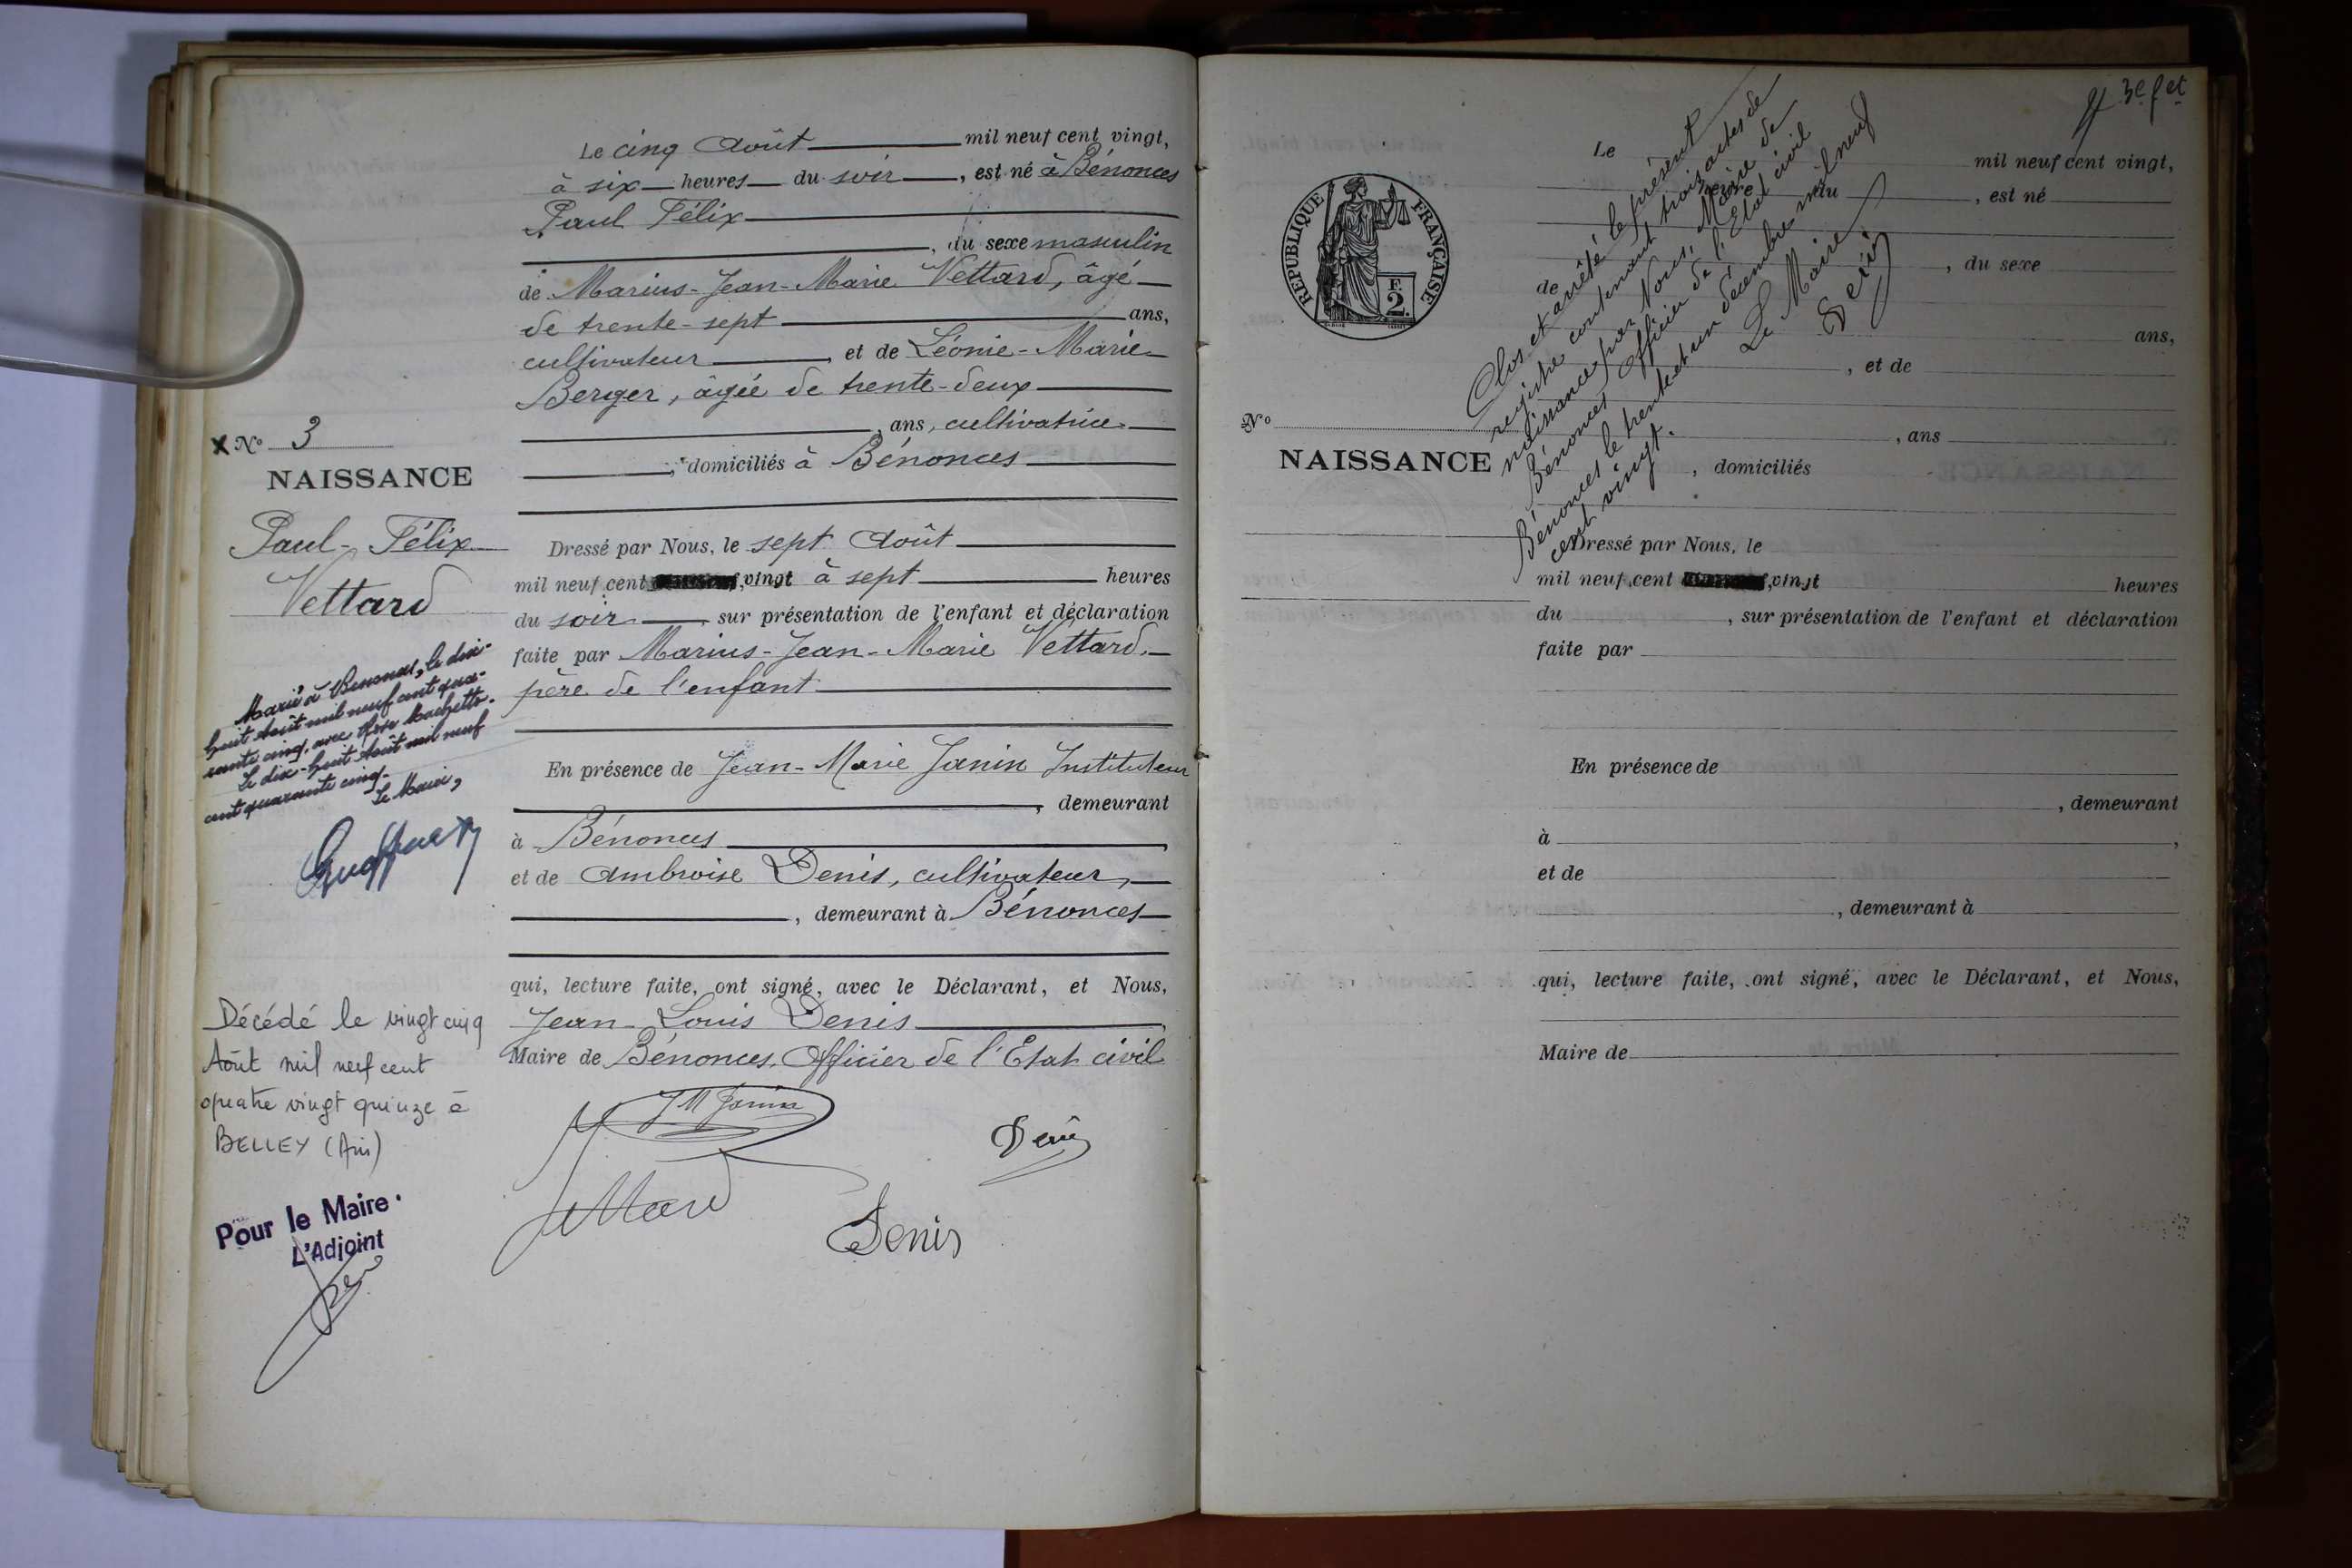 Le cinq Août mil neuf cent vingt,
à six heures du soir, est né à Bénonces
Paul Félix
, du sexe masculin
de Marius-Jean-Marie Vettard, âgé
de trente-sept ans,
cultivateur, et de Léonie-Marie
Berger, âgée de trente-deux
, ans, cultivatrice
, domiciliés à Bénonces
X No 3
NAISSANCE
Paul-Félix
Vettard
Dressé par Nous, le sept Août
mil neuf cent vingt à sept heures
du soir, sur présentation de l'enfant et déclaration
faite par Marius-Jean-Marie Vettard,
père de l'enfant
Marié à Bénonces, le dix-
huit Août mil neuf cent qua-
rante cinq, avec Rose
Le dix-huit Août mil neuf
cent quarante cinq.
Le Maire,
En présence de Jean-Marie Janin Instituteur
, demeurant
à Bénonces,
et de Ambroise Denis, cultivateur,
, demeurant à Bénonces
qui, lecture faite, ont signé, avec le Déclarant, et Nous,
Jean-Louis Denis,
Maire de Bénonces, Officier de l'Etat civil
JM Janin
Denis
Vettard
Denis
Décédé le vingt cinq
Août mil neuf cent
quatre vingt quinze à
BELLEY (Ain)
Pour le Maire
L'Adjoint
3e f et
REPUBLIQUE FRANÇAISE
F.
2.
Le mil neuf cent vingt,
heure du , est né
, du sexe
de
ans,
, et de
No , ans
NAISSANCE , domiciliés
Dressé par Nous, le
mil neuf cent vingt heures
du , sur présentation de l'enfant et déclaration
faite par
En présence de
, demeurant
à ,
et de
, demeurant à
qui, lecture faite, ont signé, avec le Déclarant, et Nous,
Maire de
Clos et arrêté le présent
registre contenant trois actes de
naissance par Nous, Maire de
Bénonces Officier de l'Etat civil
Bénonces le trente et un décembre mil neuf
cent vingt.
Le Maire
Denis